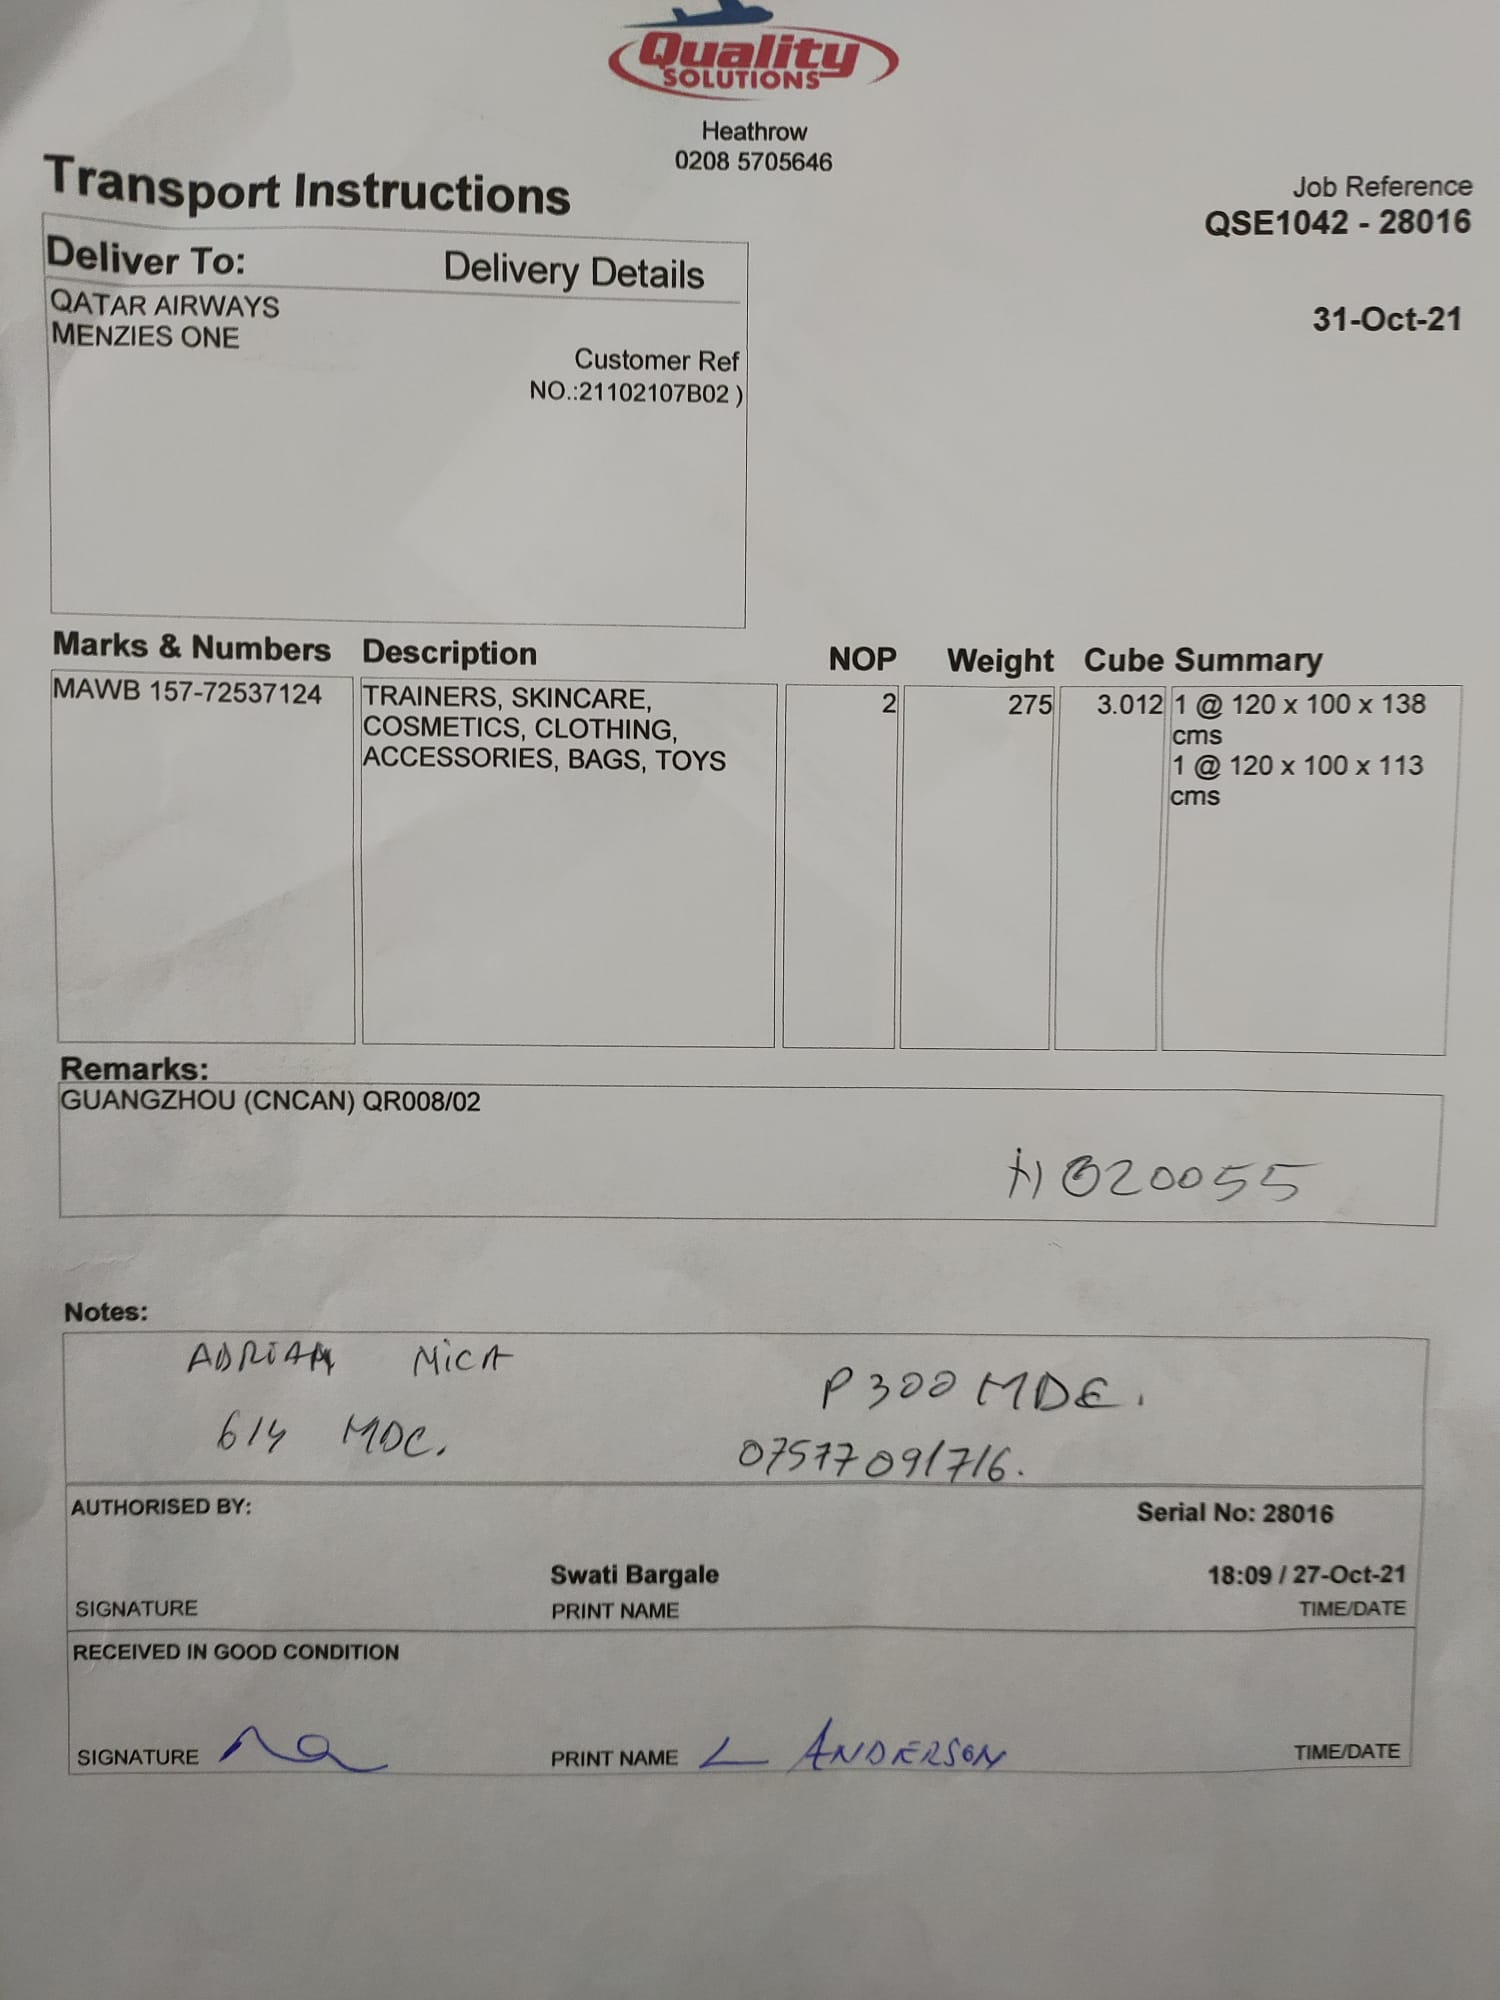 Quality
SOLUTIONS
Heathrow
0208 5705646
Transport Instructions
Job Reference
QSE1042 - 28016
31-Oct-21
Deliver To: Delivery Details
QATAR AIRWAYS
MENZIES ONE
Customer Ref
NO.:21102107B02 )
Marks & Numbers Description NOP Weight Cube Summary
MAWB 157-72537124 TRAINERS, SKINCARE, 2 275 3.012 1 @ 120 x 100 x 138
COSMETICS, CLOTHING, cms
ACCESSORIES, BAGS, TOYS 1 @ 120 x 100 x 113
cms
Remarks:
GUANGZHOU (CNCAN) QR008/02
020055
Notes:
ADRIAN MICA
P300 MDE.
614 MDC.
07577091716.
AUTHORISED BY: Serial No: 28016
Swati Bargale 18:09 / 27-Oct-21
SIGNATURE PRINT NAME TIME/DATE
RECEIVED IN GOOD CONDITION
SIGNATURE PRINT NAME L ANDERSON TIME/DATE